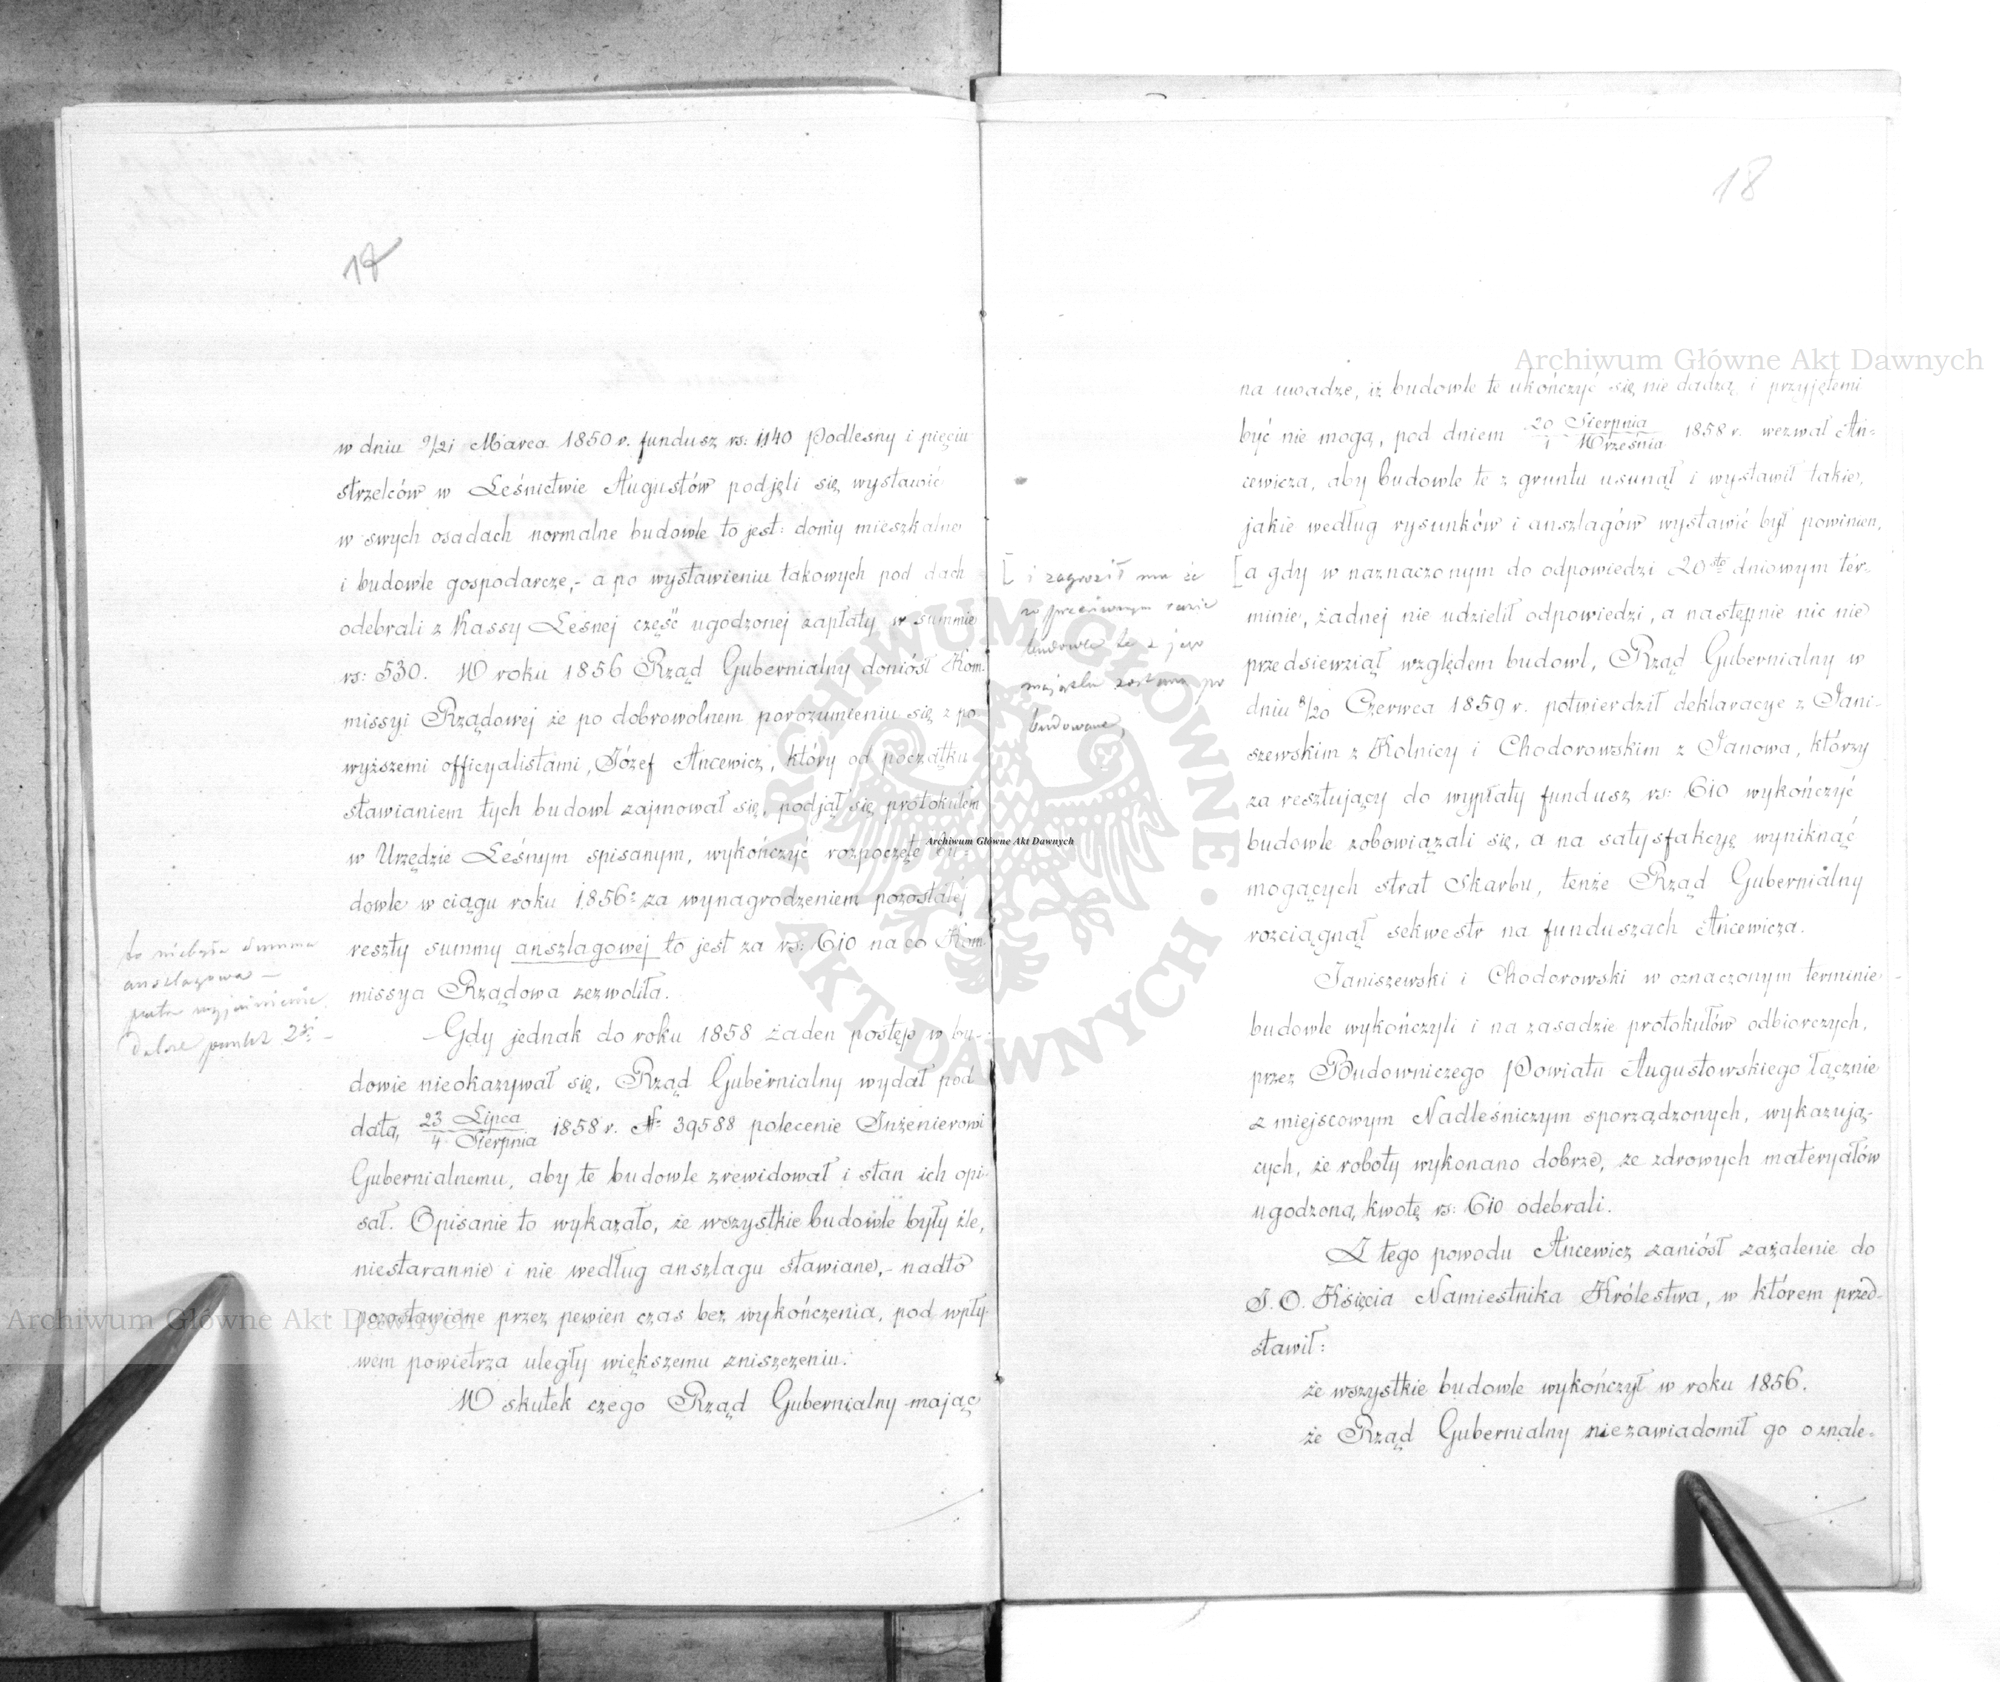 17
w dniu 9/21 Marca 1850 r. fundusz rs: 1140 Podleśny i pięciu
strzelców w Leśnictwie Augustów podjęli się wystawić
w swych osadach normalne budowle to jest: domy mieszkalne
i budowle gospodarcze,- a po wystawieniu takowych pod dach
odebrali z Kassy Leśnej część ugodzonej zapłaty w summie
rs: 530. W roku 1856 Rząd Gubernialny doniósł Kom-
missyi Rządowej że po dobrowolnem porozumieniu się z po
wyższemi officyalistami, Józef Ancewicz, który od początku
stawianiem tych budowl zajmował się, podjął się protokułem
w Urzędzie Leśnym spisanym, wykończyć rozpoczęte bu-
dowle w ciągu roku 1856: za wynagrodzeniem pozostałej
reszty summy anszlagowej to jest za rs: 610 na co Kom-
missya Rządowa zezwoliła.
to niebyła summa
anszlagowa —
patrz wyjaśnienie
dalsze punkt 2gi —
Gdy jednak do roku 1858 żaden postęp w bu-
dowie nieokazywał się, Rząd Gubernialny wydał pod
datą 23 Lipca/4 Sierpnia 1858 r. № 39588 polecenie Inżenierowi
Gubernialnemu, aby te budowle zrewidował i stan ich opi-
sał. Opisanie to wykazało, że wszystkie budowle były źle,
niestarannie i nie według anszlagu stawiane,- nadto
pozostawione przez pewien czas bez wykończenia, pod wpły-
wem powietrza uległy większemu zniszczeniu.
W skutek czego Rząd Gubernialny mając
18
na uwadze, iż budowle te ukończyć się nie dadzą i przyjętemi
być nie mogą, pod dniem 20 Sierpnia/1 Września 1858 r. wezwał An-
cewicza, aby budowle te z gruntu usunął i wystawił takie,
jakie według rysunków i anszlagów wystawić był powinien,
[ i zagroził mu że
w przeciwnym razie
budowle te z jego
majątku zostaną po
budowane,
[a gdy w naznaczonym do odpowiedzi 20sto dniowym ter-
minie, żadnej nie udzielił odpowiedzi, a następnie nic nie
przedsiewziął względem budowl, Rząd Gubernialny w
dniu 8/20 Czerwca 1859 r. potwierdził deklaracye z Jani-
szewskim z Kolnicy i Chodorowskim z Janowa, którzy
za resztujący do wypłaty fundusz rs: 610 wykończyć
budowle zobowiązali się, a na satysfakcyę wyniknąć
mogących strat Skarbu, tenże Rząd Gubernialny
rozciągnął sekwestr na funduszach Ancewicza.
Janiszewski i Chodorowski w oznaczonym terminie
budowle wykończyli i na zasadzie protokułów odbiorczych,
przez Budowniczego Powiatu Augustowskiego łącznie
z miejscowym Nadleśniczym sporządzonych, wykazują-
cych, że roboty wykonano dobrze, ze zdrowych materyałów
ugodzoną kwotę rs: 610 odebrali.
Z tego powodu Ancewicz zaniósł zażalenie do
J. O. Księcia Namiestnika Królestwa, w którem przed-
stawił:
że wszystkie budowle wykończył w roku 1856.
że Rząd Gubernialny niezawiadomił go o znale-
Archiwum Główne Akt Dawnych
Archiwum Główne Akt Dawnych
Archiwum Główne Akt Dawnych
ARCHIWUM GŁÓWNE AKT DAWNYCH